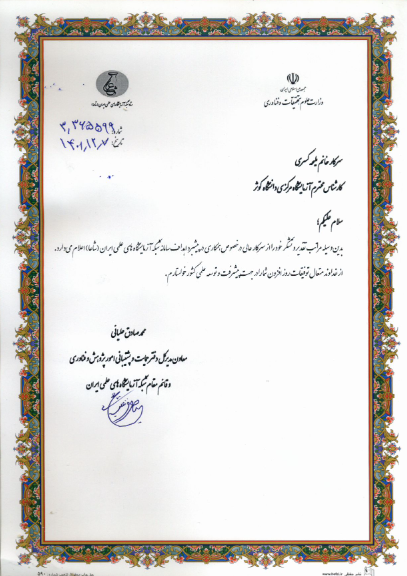 جمهوری اسلامی ایران
وزارت علوم، تحقیقات و فناوری
شماره: ۳٫۳۶۵۵۹۹
تاریخ: ۱۴۰۱٫۱۲٫۷
سرکار خانم ملیحه کسری
کارشناس محترم آزمایشگاه مرکزی دانشگاه کوثر
سلام علیکم؛
بدین وسیله مراتب تقدیر و تشکر خود را از سرکار عالی در خصوص همکاری در پیشبرد اهداف سامانه شبکه آزمایشگاه های علمی ایران (شاعا) اعلام می دارد.
از خداوند متعال توفیقات روز افزون شما را در جهت پیشرفت و توسعه علمی کشور خواستارم.
محمدصادق علیائی
معاون مدیرکل دفتر حمایت و پشتیبانی امور پژوهش و فناوری
و قائم مقام شبکه آزمایشگاه های علمی ایران